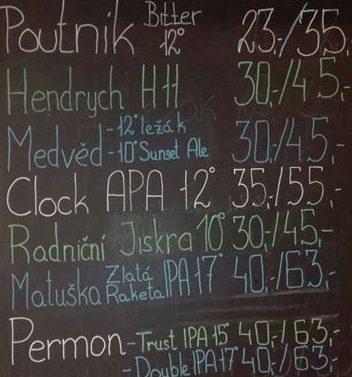 Poutník Bitter 12° 23,-/35,-
Hendrych H11 30,-/45,-
Medvěd -12° ležák 30,/45,-
-10° Sunset Ale
Clock APA 12° 35,-/55,-
Radniční Jiskra 10° 30,-/45,-
Matuška Zlatá Raketa IPA 17° 40,-/63,-
Permon -Trust IPA 15° 40,-/63,-
-Double IPA 17° 40,-/63,-